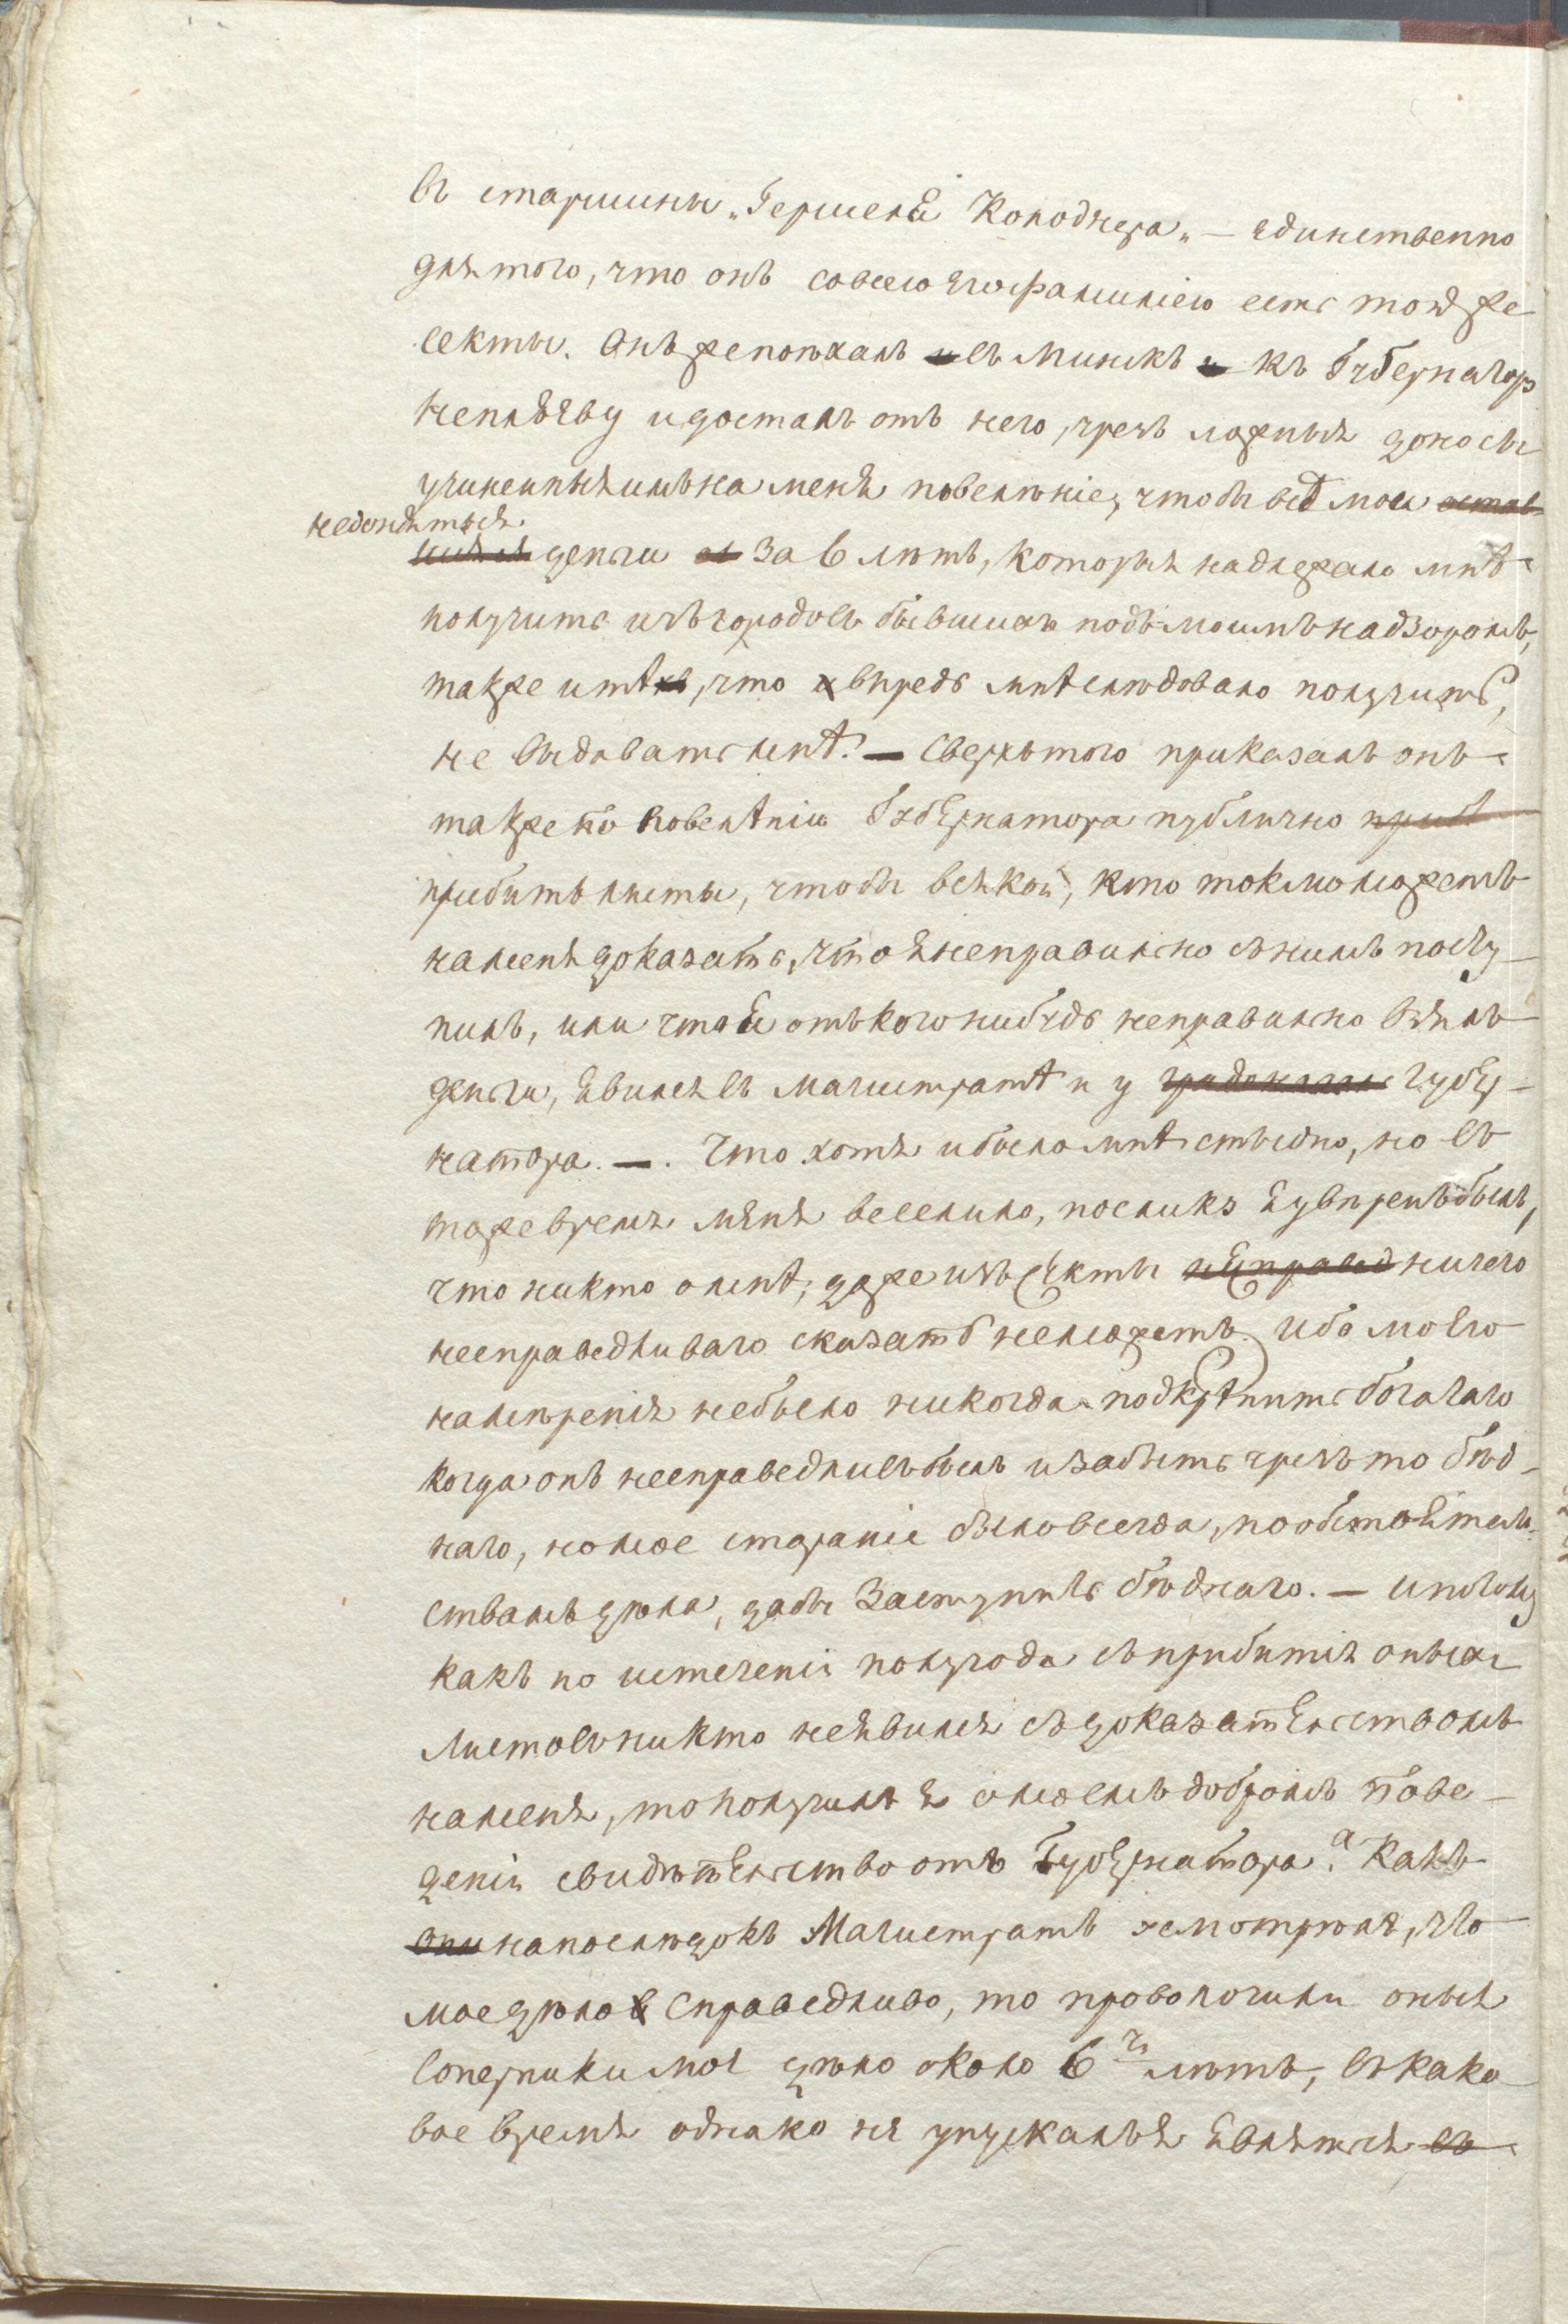 въ старшины „Гершеля Колоднера„ — единственно
для того, что онъ совсею его фамилiею есть тояже
секты. Онъ же поѣхалъ въ Минскъ къ Губернатору
Неплѣеву и досталъ отъ него, чрезъ ложныя доносы
учиненныя имъ на меня повелѣнiе, чтобы всѣ мои остав-
недоидмтыя
шiяся деньги за 6 лѣтъ, которыя надлежало мнѣ
получить изъ городовъ бывшихъ подъ моимъ надзоромъ,
также и тѣ, что впредь мнѣ слѣдовало получить,
не выдавать мнѣ. — Сверхъ того приказалъ онъ
также по повелѣнiю Губернатора публично приб
прибить листы, чтобы всякой, кто токмо можетъ
на меня доказать, что я неправильно съ нимъ посту-
пилъ, или что я отъ кого нибудь неправильно взялъ
деньги, явился въ магистратѣ и у губер-
натора. —. Что хотя и было мнѣ стыдно, но въ
тоже время меня веселило, поелику я увѣренъ былъ,
что никто о мнѣ, даже изъ секты несправед ничего
несправедливаго сказать неможетъ. Ибо моего
намѣренiя небыло никогда подкрѣпить богатаго
когда онъ несправедливъ былъ и забыть чрезъ то бѣд-
наго, но мое старанiе было всегда, по обстоятель-
ствамъ дѣла, дабы заступить бѣднаго. — И потому
какъ по истеченiи полугода съ прибитiя оныхъ
листовъ никто неявился съ доказательствомъ
на меня, то получилъ я о моемъ добромъ пове-
денiи свидѣтельство отъ Губернатора. а Какъ
они напослѣдокъ Магистратъ усмотрѣлъ, что
мое дѣло справедливо, то проволочили оныя
соперники мои дѣло около 6ти лѣтъ, въ како-
вое время однако не упускалъ я являться въ